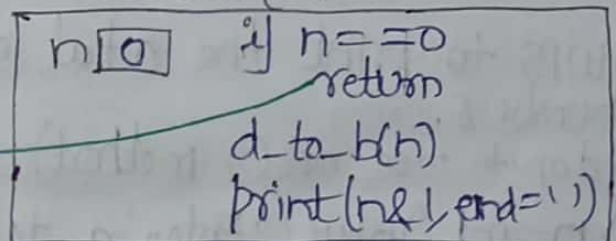 n 0 if n==0
return
d_to_b(n)
print(n&1, end='')